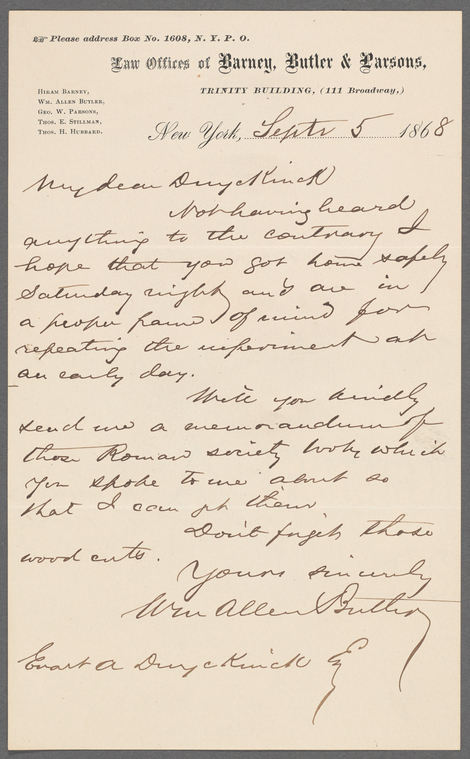 ☞ Please address Box No. 1608, N. Y. P. O.
Law Offices of Barney, Butler & Parsons,
TRINITY BUILDING, (111 Broadway,)
HIRAM BARNEY,
WM. ALLEN BUTLER,
GEO. W. PARSONS,
THOS. E. STILLMAN,
THOS. H. HUBBARD.
New York, Septr 5 1868
My dear Duyckinck
Not having heard
anything to the contrary I
hope that you got home safely
Saturday night and are in
a proper frame of mind for
repeating the experiment at
an early day.
Will you kindly
send me a memorandum of
those Roman society books which
you spoke to me about so
that I can get them
Don't forget those
wood cuts.
Yours sincerely
Wm Allen Butler
Evart A Duyckinck Esq